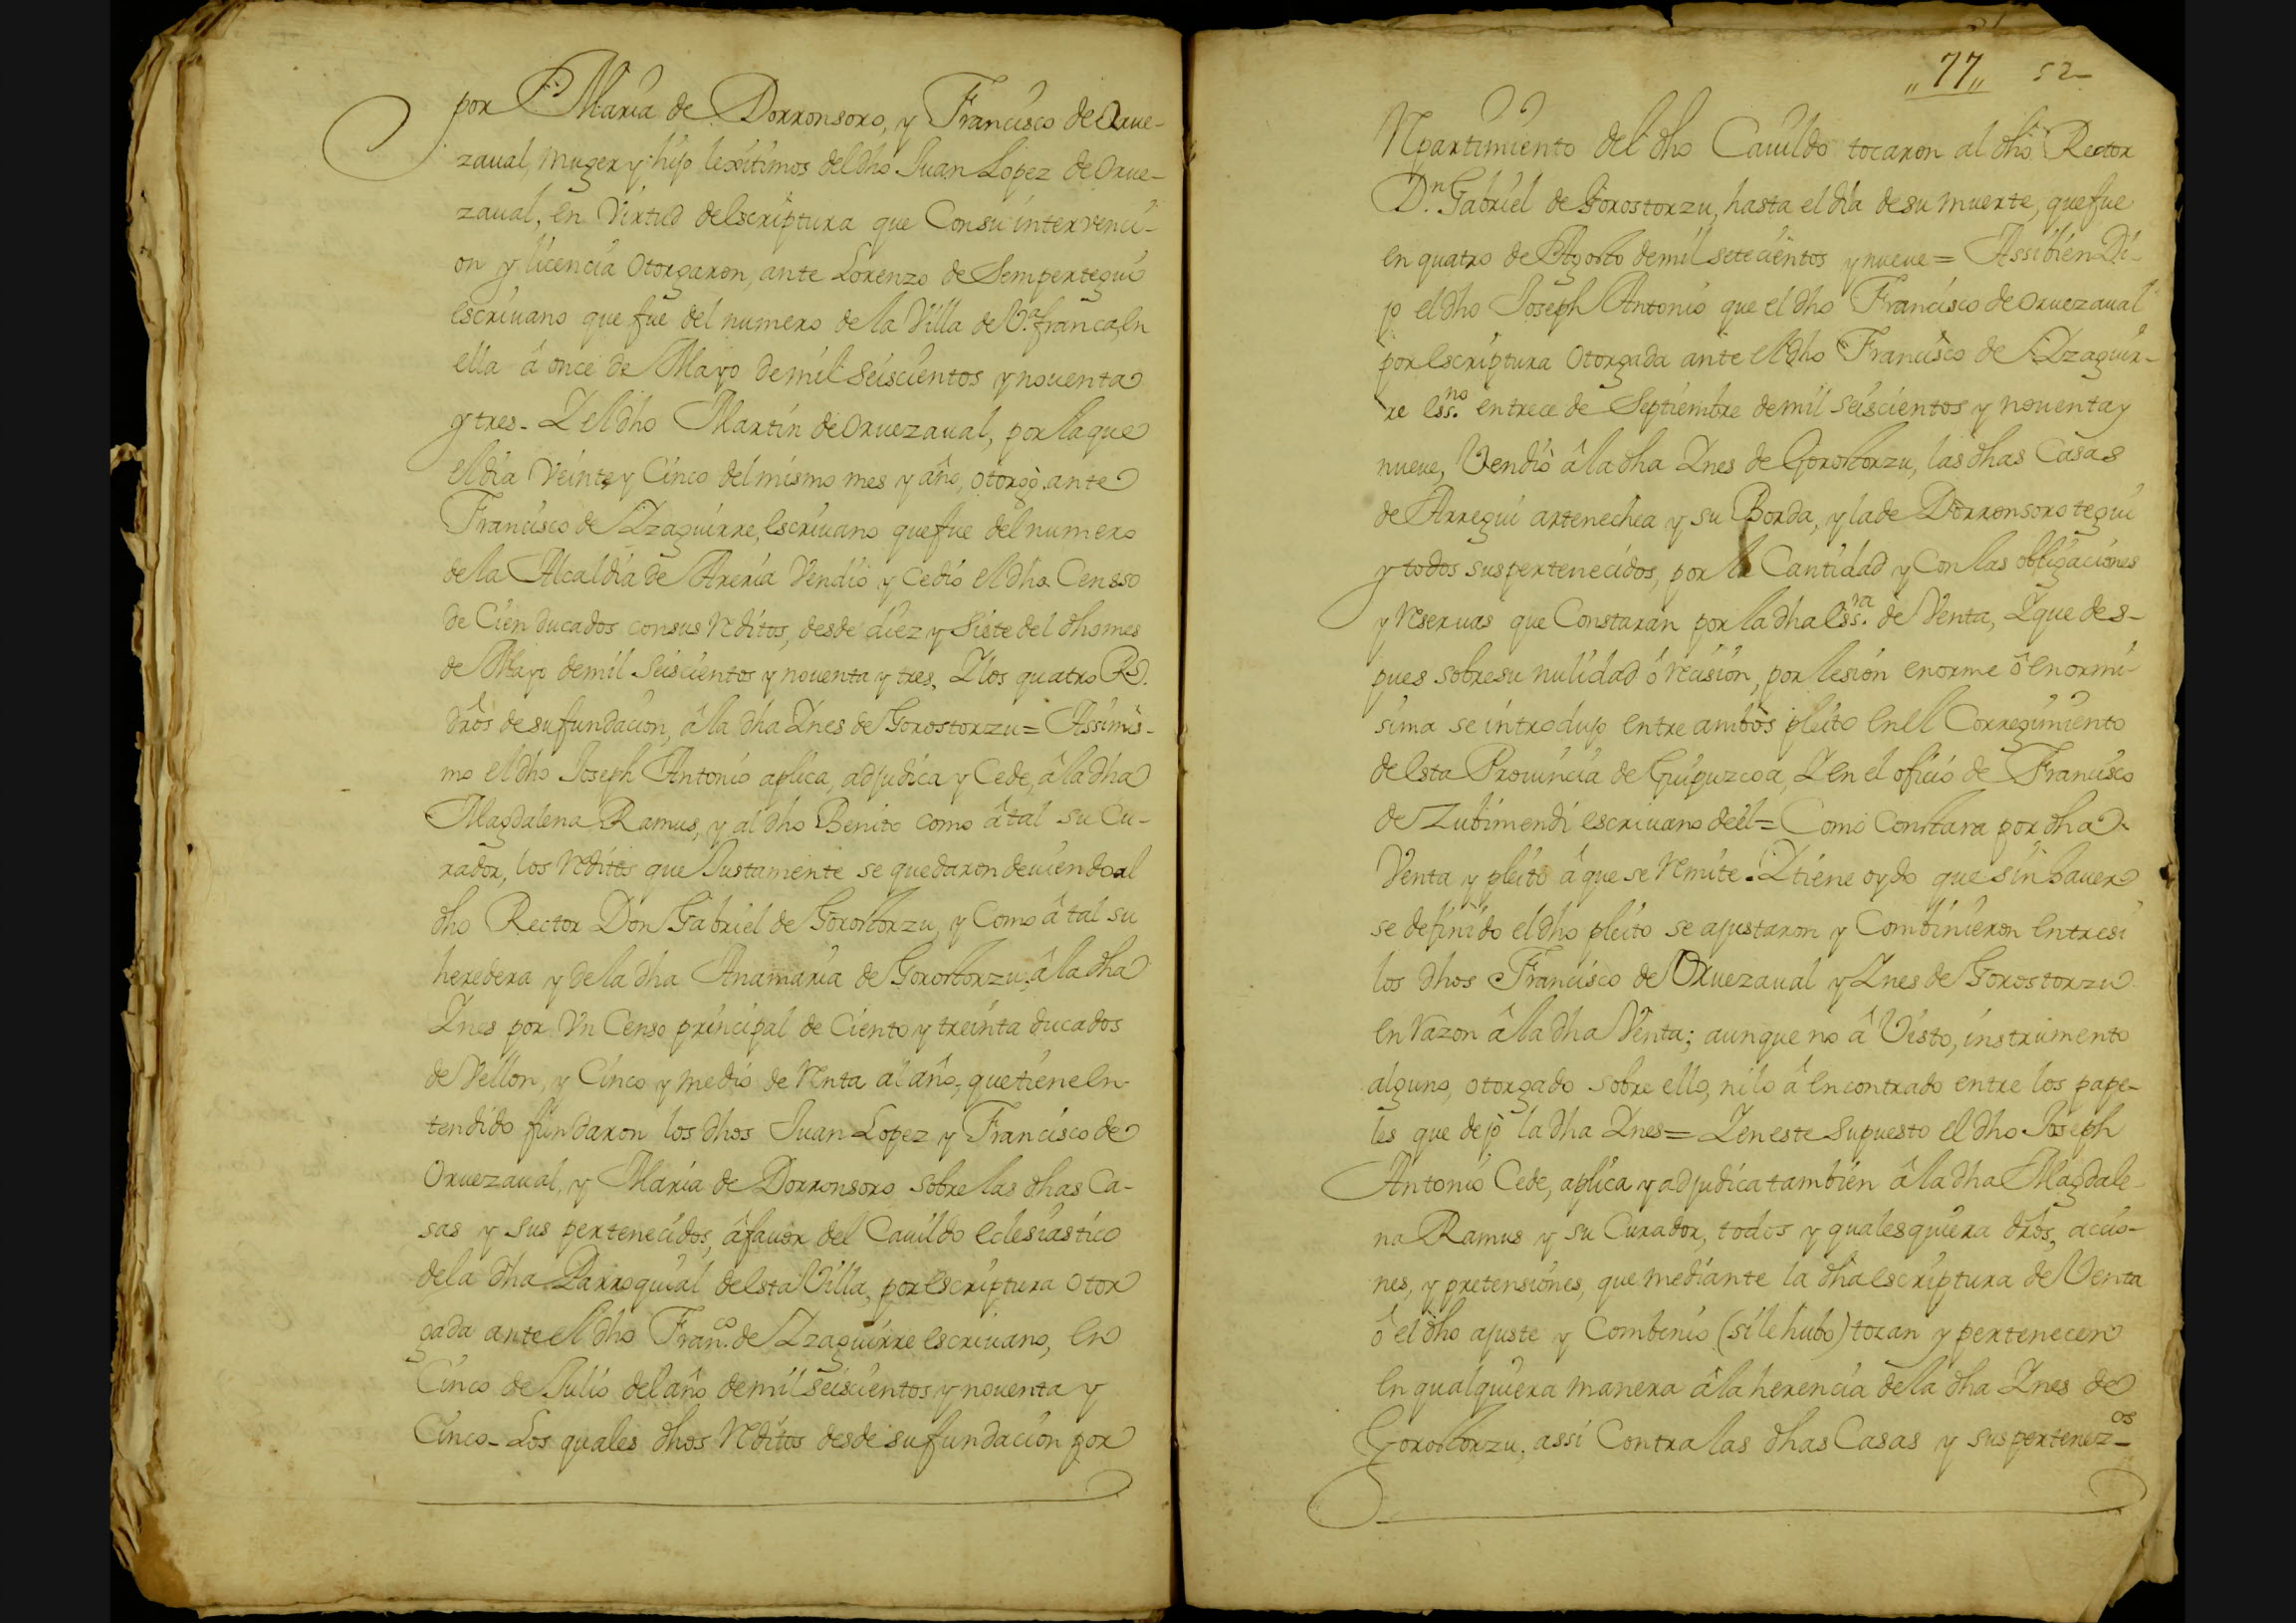 por Maria de Dorronsoro, y Francisco de Orue-
zaual, muger y hijo lexitimos del dho Juan Lopez de Orue-
zaual, en Virtud de escriptura que Con su intervenci-
on y licencia otorgaron, ante Lorenzo de Sempertegui
escriuano que fue del numero de la Villa de V.ª franca, en
ella â once de Mayo de mil seiscientos y nouenta
y tres. Y el dho Martin de Oruezaual, por la que
el dia Veinte y Cinco del mismo mes y año, otorgò ante
Francisco de Yzaguirre, escriuano que fue del numero
de la Alcaldia de Areria Vendio y Cedio el dho Censso
de Cien ducados con sus Reditos, desde diez y siete del dho mes
de Mayo de mil seiscientos y nouenta y tres, Y los quatro Rs.
drôs de su fundacion, â la dha Ynes de Gorostorzu = Assimis-
mo el dho Joseph Antonio aplica, adjudica y Cede, â la dha
Magdalena Ramus, y al dho Benito como â tal su Cu-
rador, los Reditos que Justamente se quedaron deuiendo al
dho Rector Don Gabriel de Gorostorzu, y Como â tal su
heredera y de la dha Anamaria de Gorostorzu, â la dha
Ynes por Vn Censo principal de Ciento y treinta ducados
de Vellon, y Cinco y medio de Renta al año, que tiene en-
tendido fundaron los dhos Juan Lopez y Francisco de
Oruezaual, y Maria de Dorronsoro sobre las dhas Ca-
sas y sus pertenecidos, â fauor del Cauildo eclesiastico
de la dha Parroquial de esta Villa, por escriptura otor
gada ante el dho Fran.co de Yzaguirre escriuano, en
Cinco de Julio del año de mil seiscientos y nouenta y
Cinco. Los quales dhos Reditos desde su fundacion por
„77„ 52
Repartimiento del dho Cauildo tocaron al dho Rector
D.n Gabriel de Gorostorzu, hasta el dia de su muerte, que fue
en quatro de Agosto de mil setecientos y nueue = Assi bien Di-
jo el dho Joseph Antonio que el dho Francisco de Oruezaual
por escriptura otorgada ante el dho Francisco de Yzaguir-
re ess.no en trece de Septiembre de mil seiscientos y nouenta y
nueue, Vendiò â la dha Ynes de Gorostorzu, las dhas Casas
de Arregui artenechea y su Borda, y la de Dorronsorotegui
y todos sus pertenecidos, por la Cantidad y Con las obligaciones
y Reseruas que Constaran por la dha ess.ra de Venta, Y que des-
pues sobre su nulidad ó Recision, por lesion enorme ô enormi-
sima se introdujo entre ambos pleito en el Corregimiento
de esta Prouincia de Guipuzcoa, Y en el oficio de Francisco
de Zubimendi escriuano de él = Como Constara por dha
Venta y pleito â que se Remite. Y tiene oydo que sin hauer
se definido el dho pleito se ajustaron y Combinieron entresi
los dhos Francisco de Oruezaual y Ynes de Gorostorzu
en razon â la dha Venta; aunque no â Visto, instrumento
alguno, otorgado sobre ello, ni lo â encontrado entre los pape-
les que dejò la dha Ynes = Y en este supuesto el dho Joseph
Antonio Cede, aplica y adjudica tambien â la dha Magdale-
na Ramus y su Curador, todos y qualesquiera drôs, accio-
nes, y pretensiones, que mediante la dha escriptura de Venta
ô el dho ajuste y Combenio (si le hubo) tocan y pertenecen
en qualquiera manera â la herencia de la dha Ynes de
Gorostorzu, assi Contra las dhas Casas y sus pertenez.os